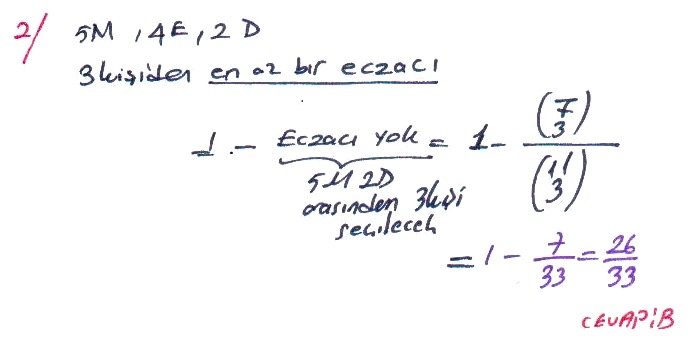 2/ 5M, 4E, 2D
3 kişiden en az bir eczacı
1 - Eczacı yok = 1 - \frac{\binom{7}{3}}{\binom{11}{3}}
5M 2D
arasından 3 kişi
seçilecek
= 1 - \frac{7}{33} = \frac{26}{33}
CEVAP: B